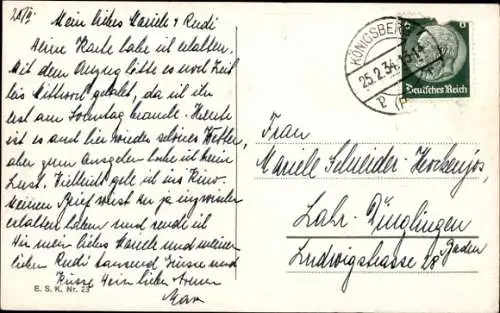 25/II
Mein liebes Mariele & Rudi
Deine Karte habe ich erhalten.
Mit dem Anzug hätte es noch Zeit
bis Mittwoch gehabt, da ich ihn
erst am Sonntag brauche. Heute
ist es auch hier wieder schönes Wetter,
aber zum Ausgehen habe ich kein
Lust. Vielleicht geh ich ins Kino.
Meinen Brief wirst Du ja inzwischen
erhalten haben und sende ich
Dir mein liebes Mariele und meinen
lieben Rudi tausend Grüsse und
Küsse Dein lieber
Max
E. S. K. Nr. 23
KÖNIGSBERG
25.2.34
Deutsches Reich
6
Frau
Mariele Schneider-Hochenjos,
Lahr-Dinglingen
Baden
Ludwigstrasse 28